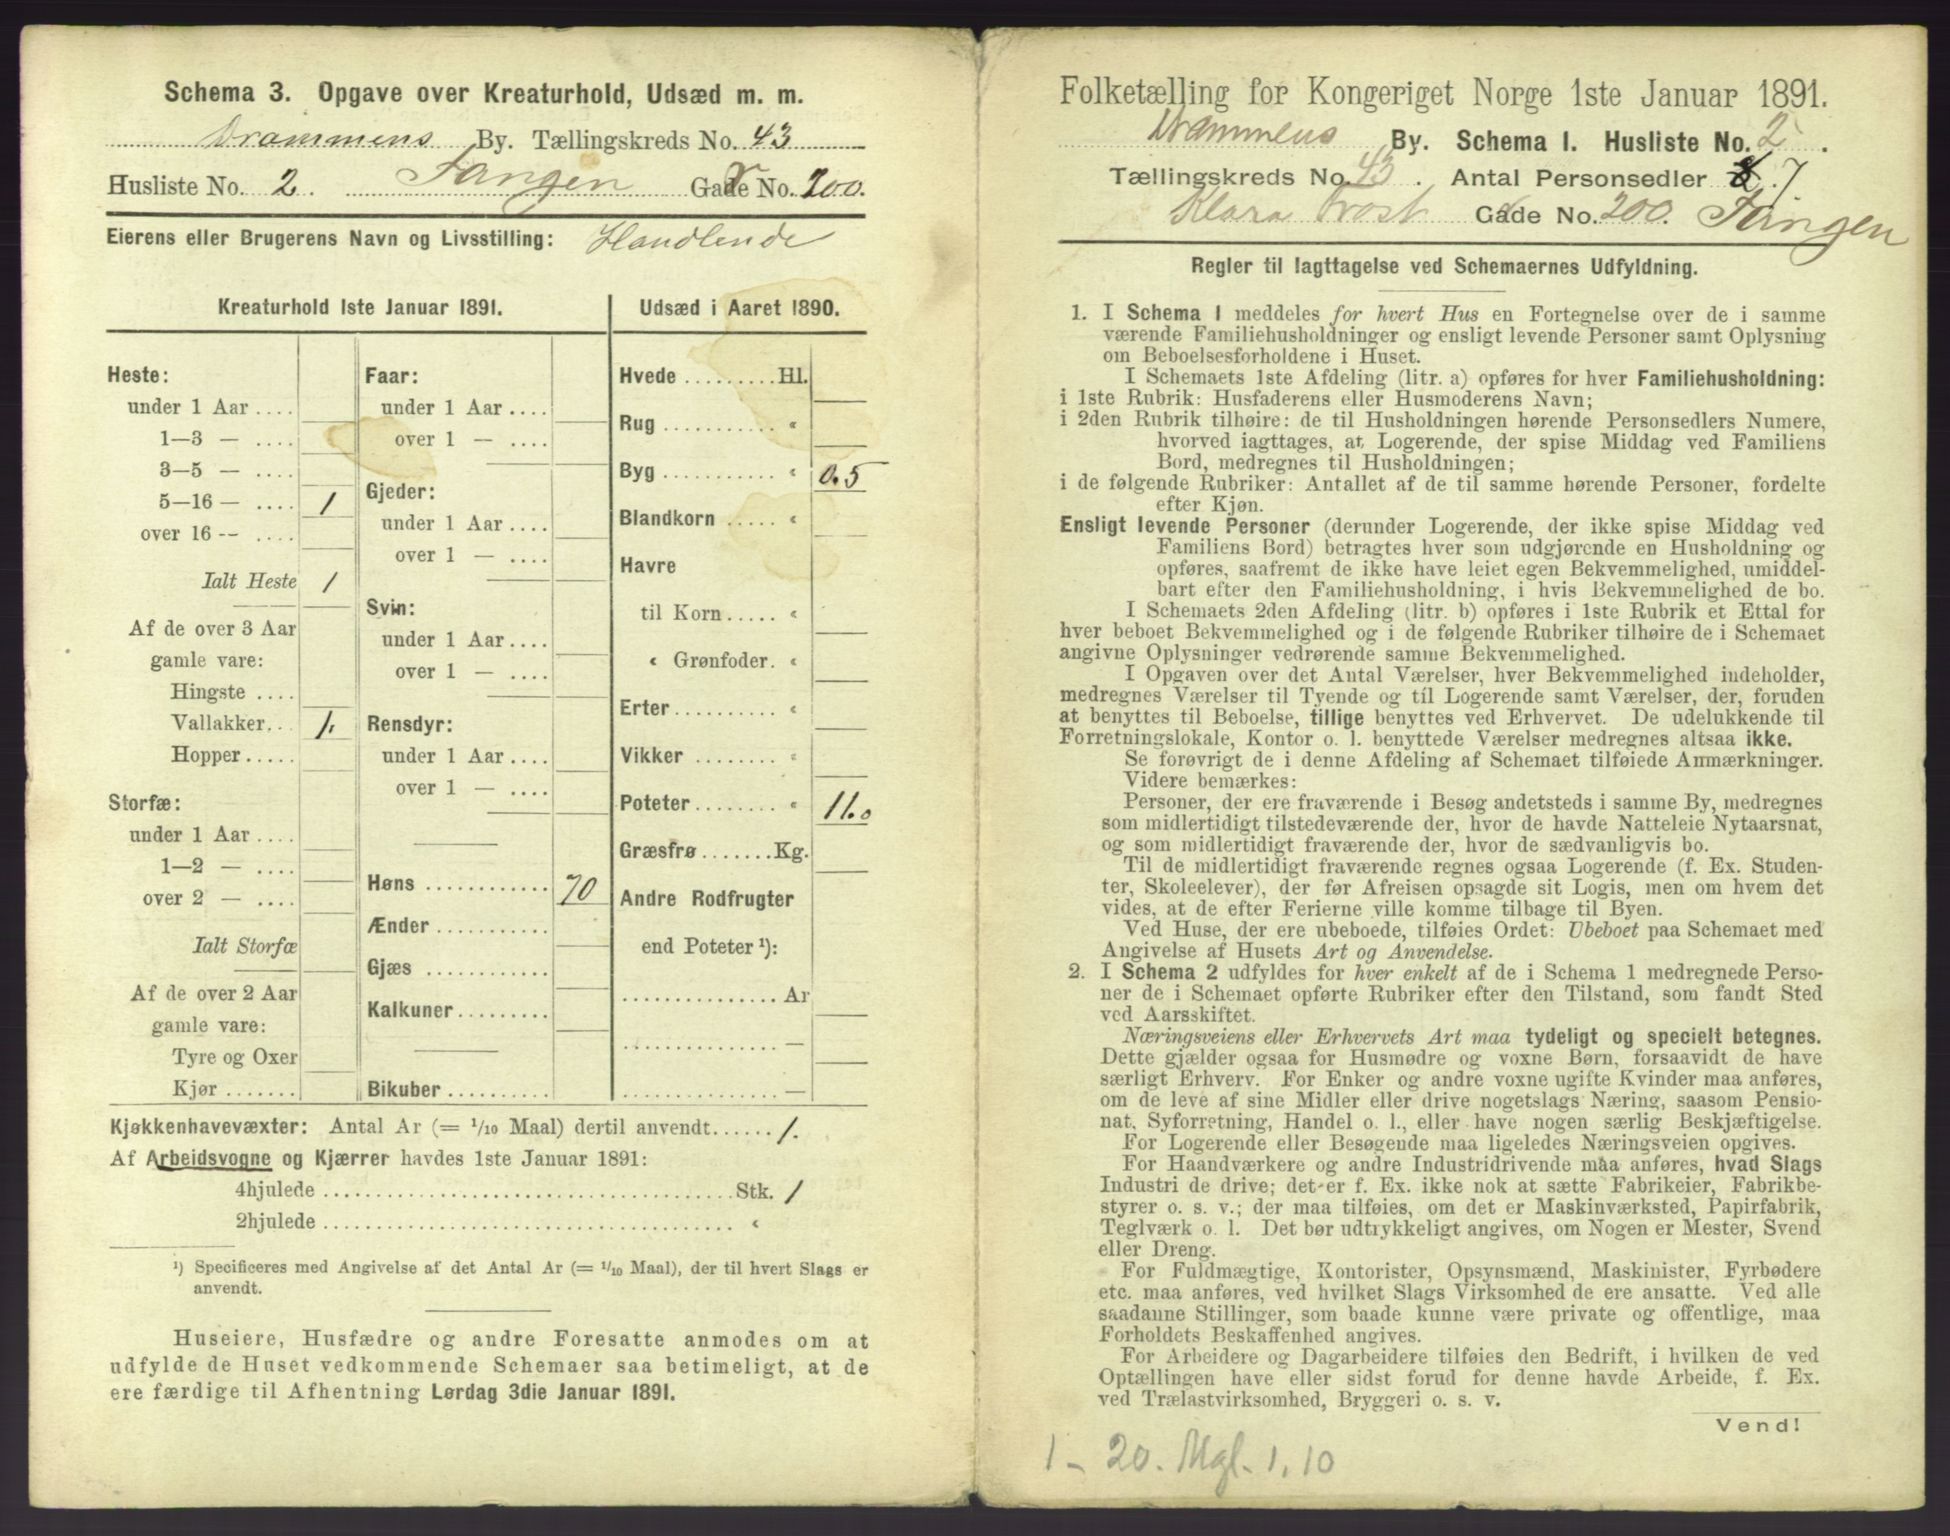 Schema 3. Opgave over Kreaturhold, Udsæd m. m.
Drammens By. Tællingskreds No. 43
Husliste No. 2. Tangen Gade No. 200.
Eierens eller Brugerens Navn og Livsstilling: Handlende
Kreaturhold 1ste Januar 1891.
Heste:
under 1 Aar ....
1—3 — ....
3—5 — ....
5—16 — .... 1
over 16 -- ....
Ialt Heste 1
Af de over 3 Aar
gamle vare:
Hingste ....
Vallakker... 1.
Hopper.....
Storfæ:
under 1 Aar ....
1—2 — ....
over 2 — ....
Ialt Storfæ
Af de over 2 Aar
gamle vare:
Tyre og Oxer
Kjør .......
Faar:
under 1 Aar ....
over 1 — ....
Gjeder:
under 1 Aar ....
over 1 — ....
Svin:
under 1 Aar ....
over 1 — ....
Rensdyr:
under 1 Aar ....
over 1 — ....
Høns ............ 70
Ænder ...........
Gjæs ............
Kalkuner.........
Bikuber ..........
Udsæd i Aaret 1890.
Hvede .........Hl.
Rug ........... «
Byg ........... « 0.5
Blandkorn ..... «
Havre
til Korn..... «
« Grønfoder. «
Erter.......... «
Vikker ........ «
Poteter........ « 11.0
Græsfrø.......Kg.
Andre Rodfrugter
end Poteter ¹):
............... Ar
............... —
............... —
Kjøkkenhavevæxter: Antal Ar (= 1/10 Maal) dertil anvendt...... 1.
Af Arbeidsvogne og Kjærrer havdes 1ste Januar 1891:
4hjulede ........................................Stk. 1
2hjulede ........................................ «
¹) Specificeres med Angivelse af det Antal Ar (= 1/10 Maal), der til hvert Slags er
anvendt.
Huseiere, Husfædre og andre Foresatte anmodes om at
udfylde de Huset vedkommende Schemaer saa betimeligt, at de
ere færdige til Afhentning Lørdag 3die Januar 1891.
Folketælling for Kongeriget Norge 1ste Januar 1891.
Drammens By. Schema I. Husliste No. 2.
Tællingskreds No. 43. Antal Personsedler 7
Klara Prost Gade No. 200. Tangen
Regler til Iagttagelse ved Schemaernes Udfyldning.
1. I Schema 1 meddeles for hvert Hus en Fortegnelse over de i samme
værende Familiehusholdninger og ensligt levende Personer samt Oplysning
om Beboelsesforholdene i Huset.
I Schemaets 1ste Afdeling (litr. a) opføres for hver Familiehusholdning:
i 1ste Rubrik: Husfaderens eller Husmoderens Navn;
i 2den Rubrik tilhøire: de til Husholdningen hørende Personsedlers Numere,
hvorved iagttages, at Logerende, der spise Middag ved Familiens
Bord, medregnes til Husholdningen;
i de følgende Rubriker: Antallet af de til samme hørende Personer, fordelte
efter Kjøn.
Ensligt levende Personer (derunder Logerende, der ikke spise Middag ved
Familiens Bord) betragtes hver som udgjørende en Husholdning og
opføres, saafremt de ikke have leiet egen Bekvemmelighed, umiddel-
bart efter den Familiehusholdning, i hvis Bekvemmelighed de bo.
I Schemaets 2den Afdeling (litr. b) opføres i 1ste Rubrik et Ettal for
hver beboet Bekvemmelighed og i de følgende Rubriker tilhøire de i Schemaet
angivne Oplysninger vedrørende samme Bekvemmelighed.
I Opgaven over det Antal Værelser, hver Bekvemmelighed indeholder,
medregnes Værelser til Tyende og til Logerende samt Værelser, der, foruden
at benyttes til Beboelse, tillige benyttes ved Erhvervet. De udelukkende til
Forretningslokale, Kontor o. l. benyttede Værelser medregnes altsaa ikke.
Se forøvrigt de i denne Afdeling af Schemaet tilføiede Anmærkninger.
Videre bemærkes:
Personer, der ere fraværende i Besøg andetsteds i samme By, medregnes
som midlertidigt tilstedeværende der, hvor de havde Natteleie Nytaarsnat,
og som midlertidigt fraværende der, hvor de sædvanligvis bo.
Til de midlertidigt fraværende regnes ogsaa Logerende (f. Ex. Studen-
ter, Skoleelever), der før Afreisen opsagde sit Logis, men om hvem det
vides, at de efter Ferierne ville komme tilbage til Byen.
Ved Huse, der ere ubeboede, tilføies Ordet: Ubeboet paa Schemaet med
Angivelse af Husets Art og Anvendelse.
2. I Schema 2 udfyldes for hver enkelt af de i Schema 1 medregnede Perso-
ner de i Schemaet opførte Rubriker efter den Tilstand, som fandt Sted
ved Aarsskiftet.
Næringsveiens eller Erhvervets Art maa tydeligt og specielt betegnes.
Dette gjælder ogsaa for Husmødre og voxne Børn, forsaavidt de have
særligt Erhverv. For Enker og andre voxne ugifte Kvinder maa anføres,
om de leve af sine Midler eller drive nogetslags Næring, saasom Pensio-
nat, Syforretning, Handel o. l., eller have nogen særlig Beskjæftigelse.
For Logerende eller Besøgende maa ligeledes Næringsveien opgives.
For Haandværkere og andre Industridrivende maa anføres, hvad Slags
Industri de drive; det er f. Ex. ikke nok at sætte Fabrikeier, Fabrikbe-
styrer o. s. v.; der maa tilføies, om det er Maskinværksted, Papirfabrik,
Teglværk o. l. Det bør udtrykkeligt angives, om Nogen er Mester, Svend
eller Dreng.
For Fuldmægtige, Kontorister, Opsynsmænd, Maskinister, Fyrbødere
etc. maa anføres, ved hvilket Slags Virksomhed de ere ansatte. Ved alle
saadanne Stillinger, som baade kunne være private og offentlige, maa
Forholdets Beskaffenhed angives.
For Arbeidere og Dagarbeidere tilføies den Bedrift, i hvilken de ved
Optællingen have eller sidst forud for denne havde Arbeide, f. Ex.
ved Trælastvirksomhed, Bryggeri o. s. v.
Vend!
1 - 20. Mgl. 1, 10